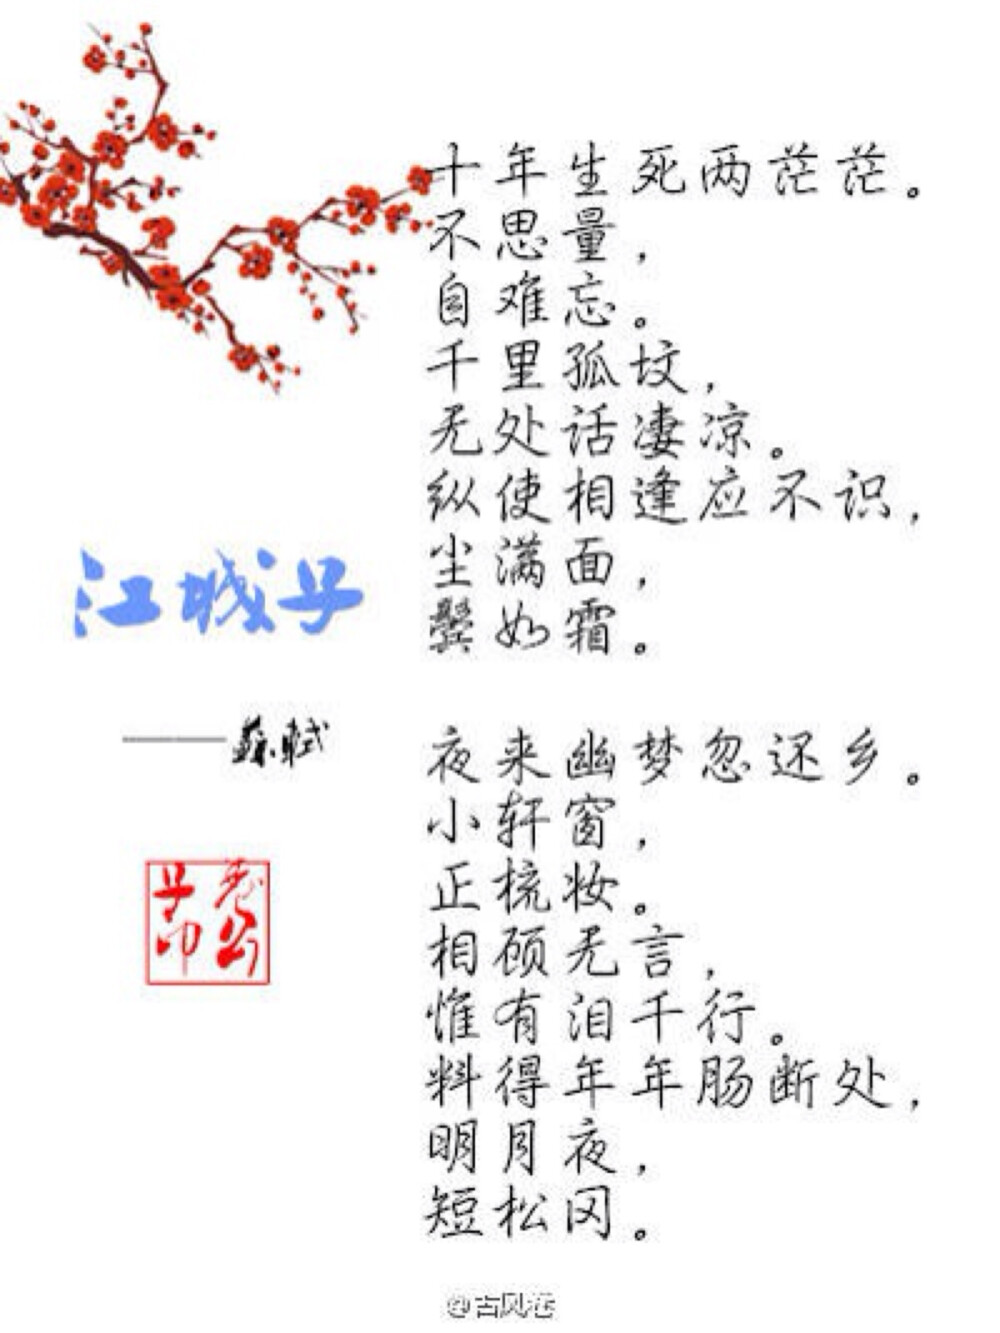 十年生死两茫茫。
不思量，
自难忘。
千里孤坟，
无处话凄凉。
纵使相逢应不识，
尘满面，
鬓如霜。
夜来幽梦忽还乡。
小轩窗，
正梳妆。
相顾无言，
惟有泪千行。
料得年年肠断处，
明月夜，
短松冈。
江城子
——苏轼
@古风卷